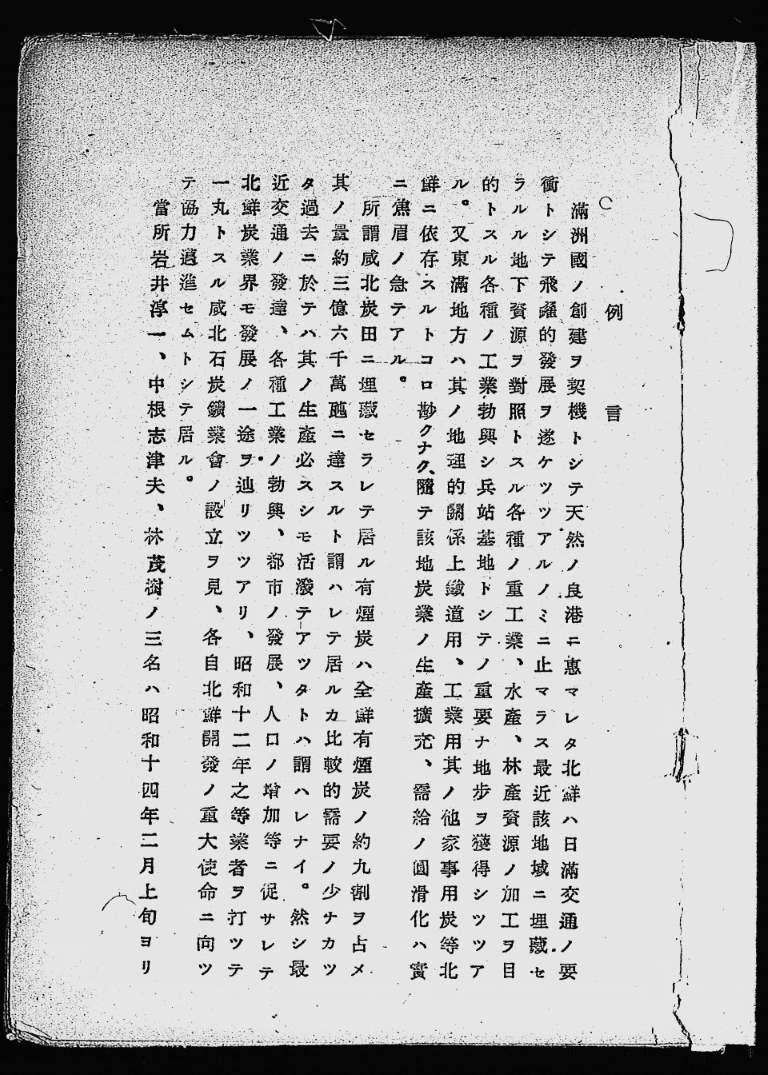 例言
滿洲國ノ創建ヲ契機トシテ天然ノ良港ニ惠マレタ北鮮ハ日滿交通ノ要
衝トシテ飛躍的發展ヲ遂ケツツアルノミニ止マラス最近該地域ニ埋藏セ
ラルル地下資源ヲ對照トスル各種ノ重工業、水產、林產資源ノ加工ヲ目
的トスル各種ノ工業勃興シ兵站基地トシテノ重要ナ地步ヲ獲得シツツア
ル。又東滿地方ハ其ノ地理的關係上鐵道用、工業用其ノ他家事用炭等北
鮮ニ依存スルトコロ尠クナク、隨テ該地炭業ノ生產擴充、需給ノ圓滑化ハ實
ニ焦眉ノ急テアル。
所謂咸北炭田ニ埋藏セラレテ居ル有煙炭ハ全鮮有煙炭ノ約九割ヲ占メ
其ノ量約三億六千萬瓲ニ達スルト謂ハレテ居ルカ比較的需要ノ少ナカツ
タ過去ニ於テハ其ノ生產必スシモ活潑テアツタトハ謂ハレナイ。然シ最
近交通ノ發達、各種工業ノ勃興、都市ノ發展、人口ノ增加等ニ促サレテ
北鮮炭業界モ發展ノ一途ヲ辿リツツアリ、昭和十二年之等業者ヲ打ツテ
一丸トスル咸北石炭鑛業會ノ設立ヲ見、各自北鮮開發ノ重大使命ニ向ツ
テ協力邁進セムトシテ居ル。
當所岩井淳一、中根志津夫、林茂樹ノ三名ハ昭和十四年二月上旬ヨリ